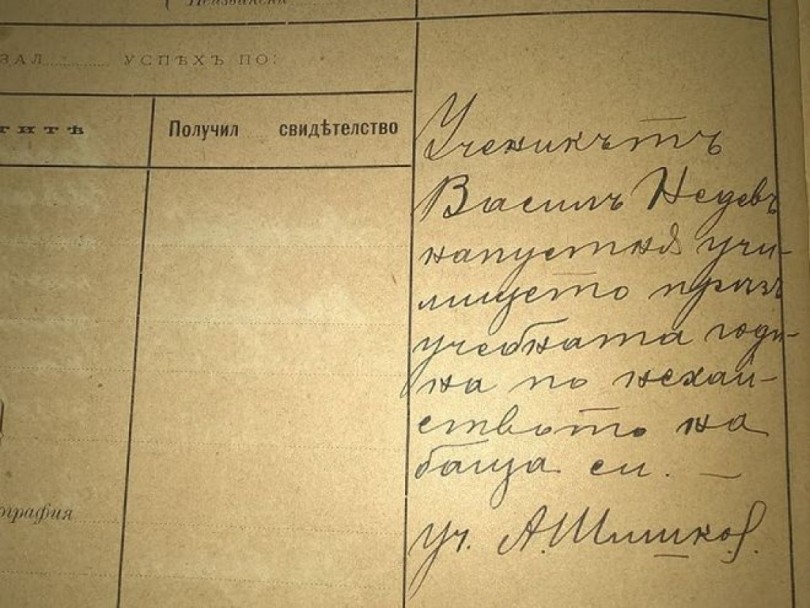 Неизвински
ЗАЛ......... УСПѢХЪ ПО:
титѣ
Получил свидѣтелство
Ученикътъ
Василъ Недевъ
напустна учи-
лището прѣзъ
учебната годи-
на по нехай-
ството на
баща си. —
ография
Уч. А. Шишков.